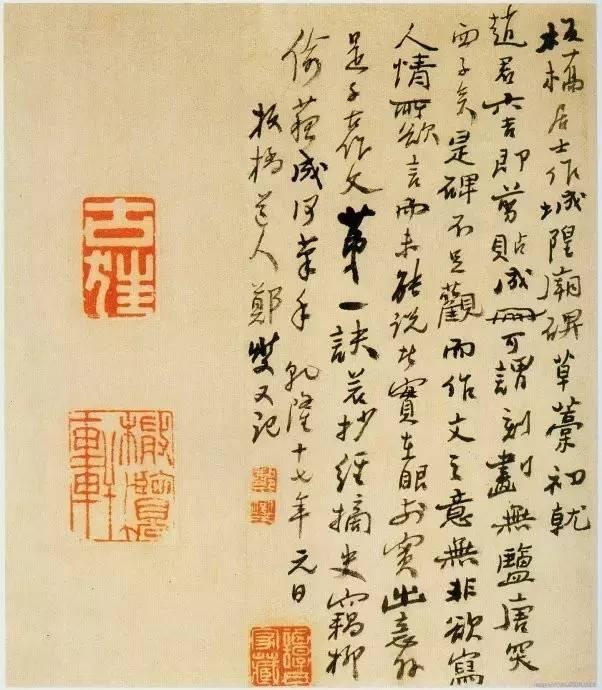 板橋居士作城隍廟碑草藁初就
趙君六吉即剪貼成冊可謂刻畫無鹽唐突
西子矣是碑不足觀而作文之意無非欲寫
人情所欲言而未能說實在眼前實出意外
是千古作文第一訣若抄經摘史竊柳
偷蘇成何筆手 乾隆十七年元日
板橋道人鄭燮又記
鄭燮